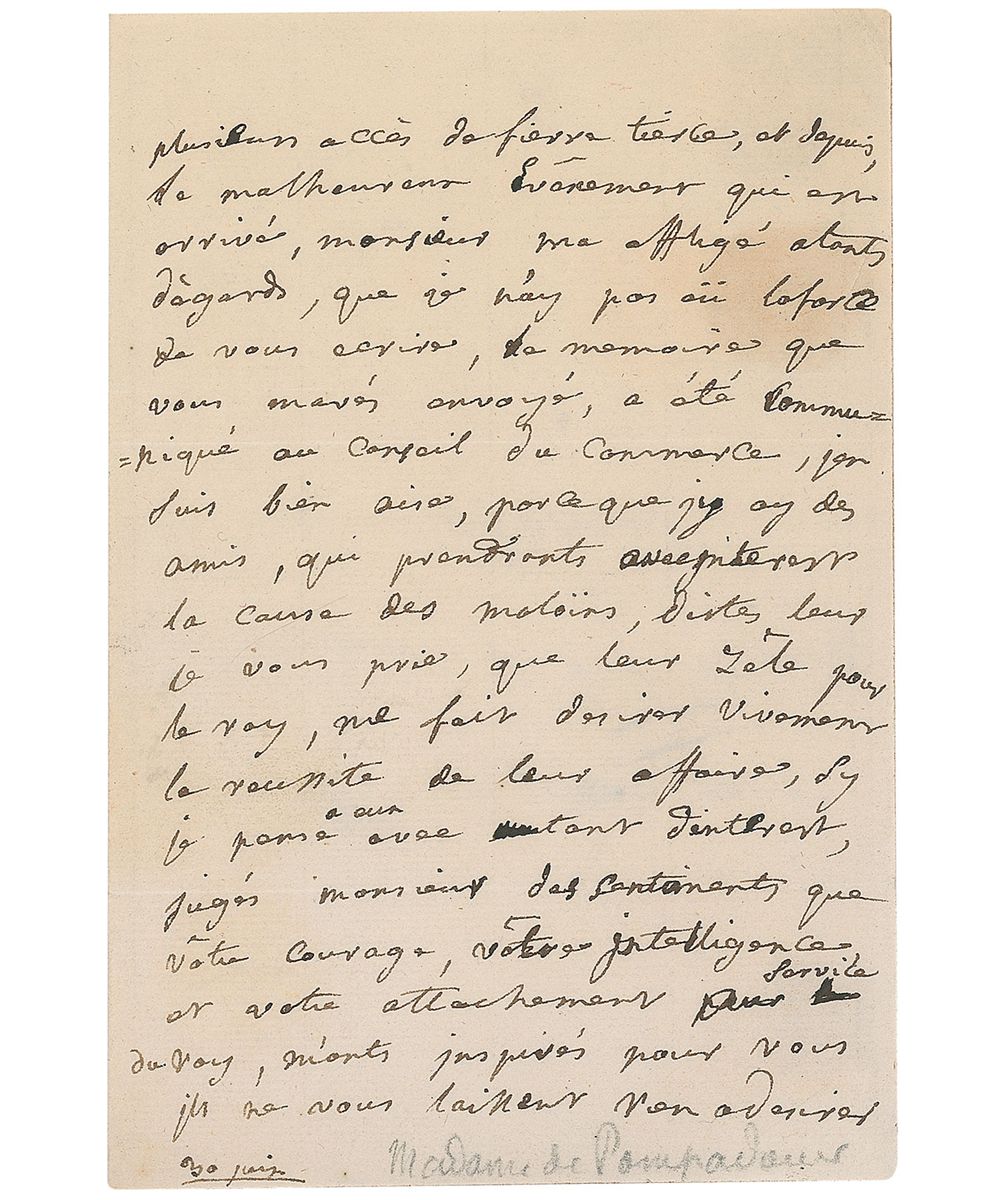 plusieurs accès de fierre tierce, et depuis,
le malheureux Evênement qui est
arrivé, monsieur ma affligé atants
dègards, que je n'ay pas eü laforce
de vous ecrire, le memoire que
vous mavés envoyé, a été Commu=
=niqué au Conseil du Commerce, jen
suis bien aise, parceque jy ay des
amis, qui prendronts avec jnterest
la cause des maloüins, dittes leur
je vous prie, que leur Zêle pour
le roy, me fait desirer Vivement
la reussite de leur affaire, Sy
je pense a eux avec tant d'interest,
jugés monsieur des Sentiments que
vôtre Courage, vôtre jntelligence
et votre attachement pour le Service
du Roy, m'onts jnspirés pour vous
jls ne vous laissent rien adesirer
30 juin
Madame de Pompadour